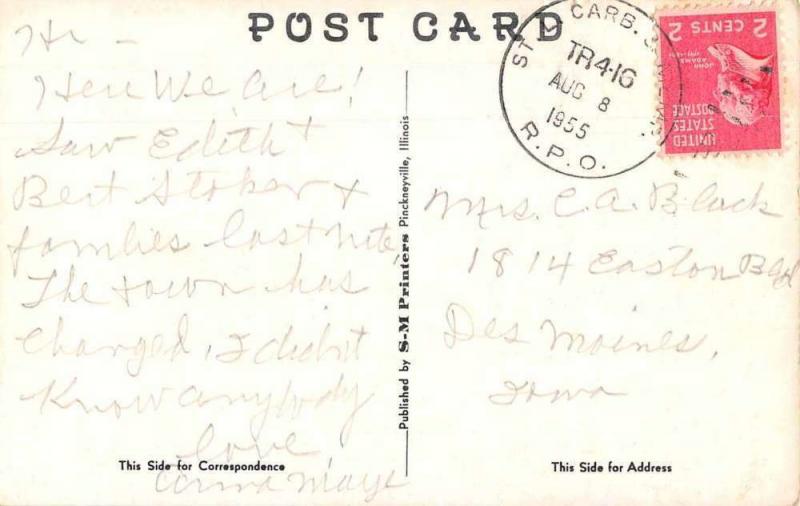 POST CARD
Hi –
Here We are!
Saw Edith +
Bert Stoker +
families last nite,
The town has
changed, I didn't
Know anybody
love
Mays
This Side for Correspondence
Published by S-M Printers Pinckneyville, Illinois
ST. CARB.
TR.4·16
AUG 8
1955
R.P.O.
2 CENTS 2
JOHN ADAMS
UNITED
STATES
POSTAGE
Mrs. C.A. Black
1814 Easton Blvd
Des Moines,
Iowa
This Side for Address